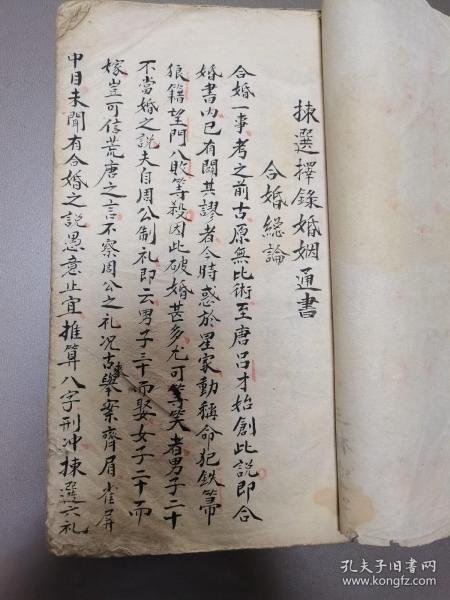 揀選擇錄婚姻通書
合婚總論
合婚一事考之前古原無此術至唐呂才始創此說即合
婚書內已有闢其謬者今時惑於星家動稱命犯鉄箒
狼籍望門八敗等殺因此破婚甚多尤可等笑者男子二十
不當婚之說夫自周公制礼即云男子三十而娶女子二十而
嫁豈可信荒唐之言不察周公之礼况古來舉案齊眉雀屏
中目未聞有合婚之說愚意止宜推算八字刑冲揀選六礼
孔夫子旧书网
www.kongfz.com